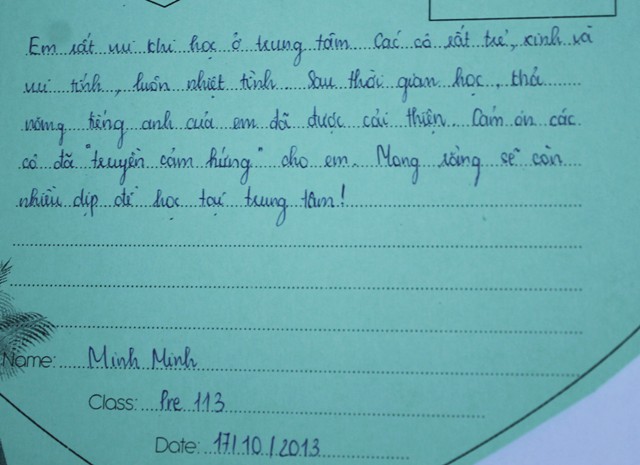 Em rất vui khi học ở trung tâm. Các cô rất trẻ, xinh và
vui tính, luôn nhiệt tình. Sau thời gian học, khả
năng tiếng anh của em đã được cải thiện. Cám ơn các
cô đã "truyền cảm hứng" cho em. Mong rằng sẽ còn
nhiều dịp để học tại trung tâm!
Name: Minh Minh
Class: Pre 113
Date: 17/10/2013